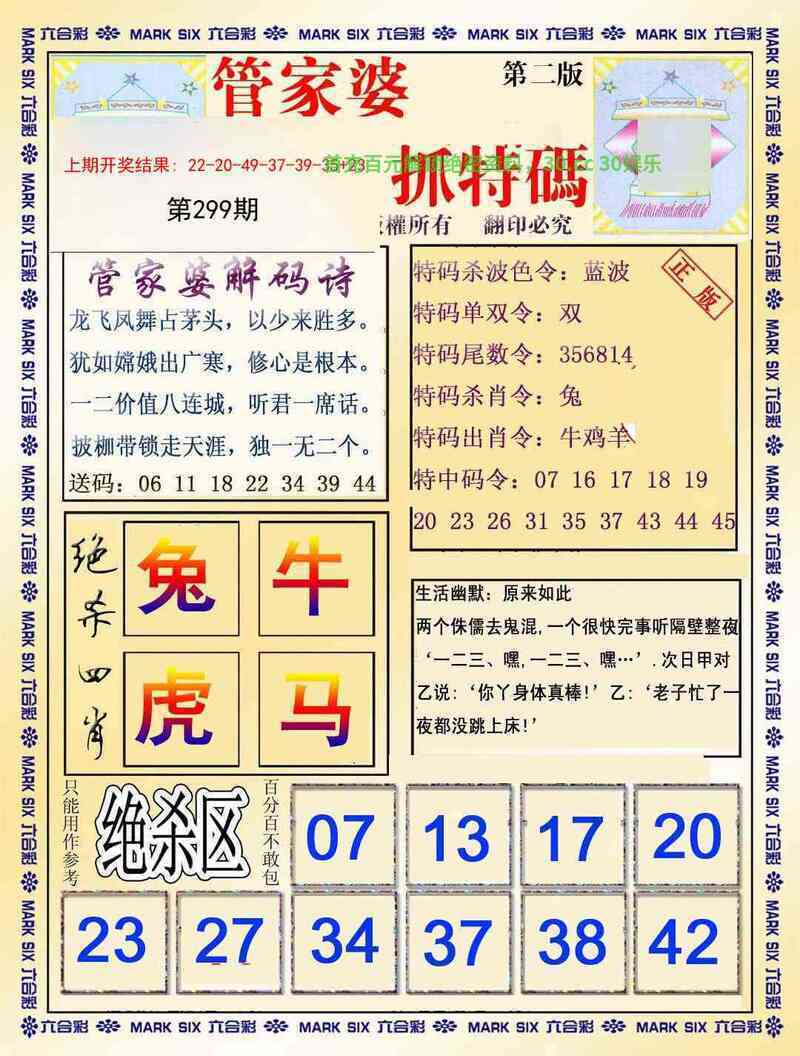 MARK SIX 六合彩 MARK SIX 六合彩 MARK SIX 六合彩 MARK SIX 六合彩
管家婆
第二版
上期开奖结果：22-20-49-37-39-35-23
抓特碼
第299期
權所有 翻印必究
管家婆解码诗
龙飞凤舞占茅头，以少来胜多。
犹如嫦娥出广寒，修心是根本。
一二价值八连城，听君一席话。
披枷带锁走天涯，独一无二个。
送码：06 11 18 22 34 39 44
正版
特码杀波色令：蓝波
特码单双令：双
特码尾数令：356814
特码杀肖令：兔
特码出肖令：牛鸡羊
特中码令：07 16 17 18 19
20 23 26 31 35 37 43 44 45
绝杀四肖
兔 牛
虎 马
生活幽默：原来如此
两个侏儒去鬼混,一个很快完事听隔壁整夜
‘一二三、嘿,一二三、嘿…’.次日甲对
乙说：‘你丫身体真棒!’乙：‘老子忙了一
夜都没跳上床!’
只能用作参考
绝杀区
百分百不敢包
07 13 17 20
23 27 34 37 38 42
六合彩 MARK SIX 六合彩 MARK SIX 六合彩 MARK SIX 六合彩 MARK SIX 六合彩